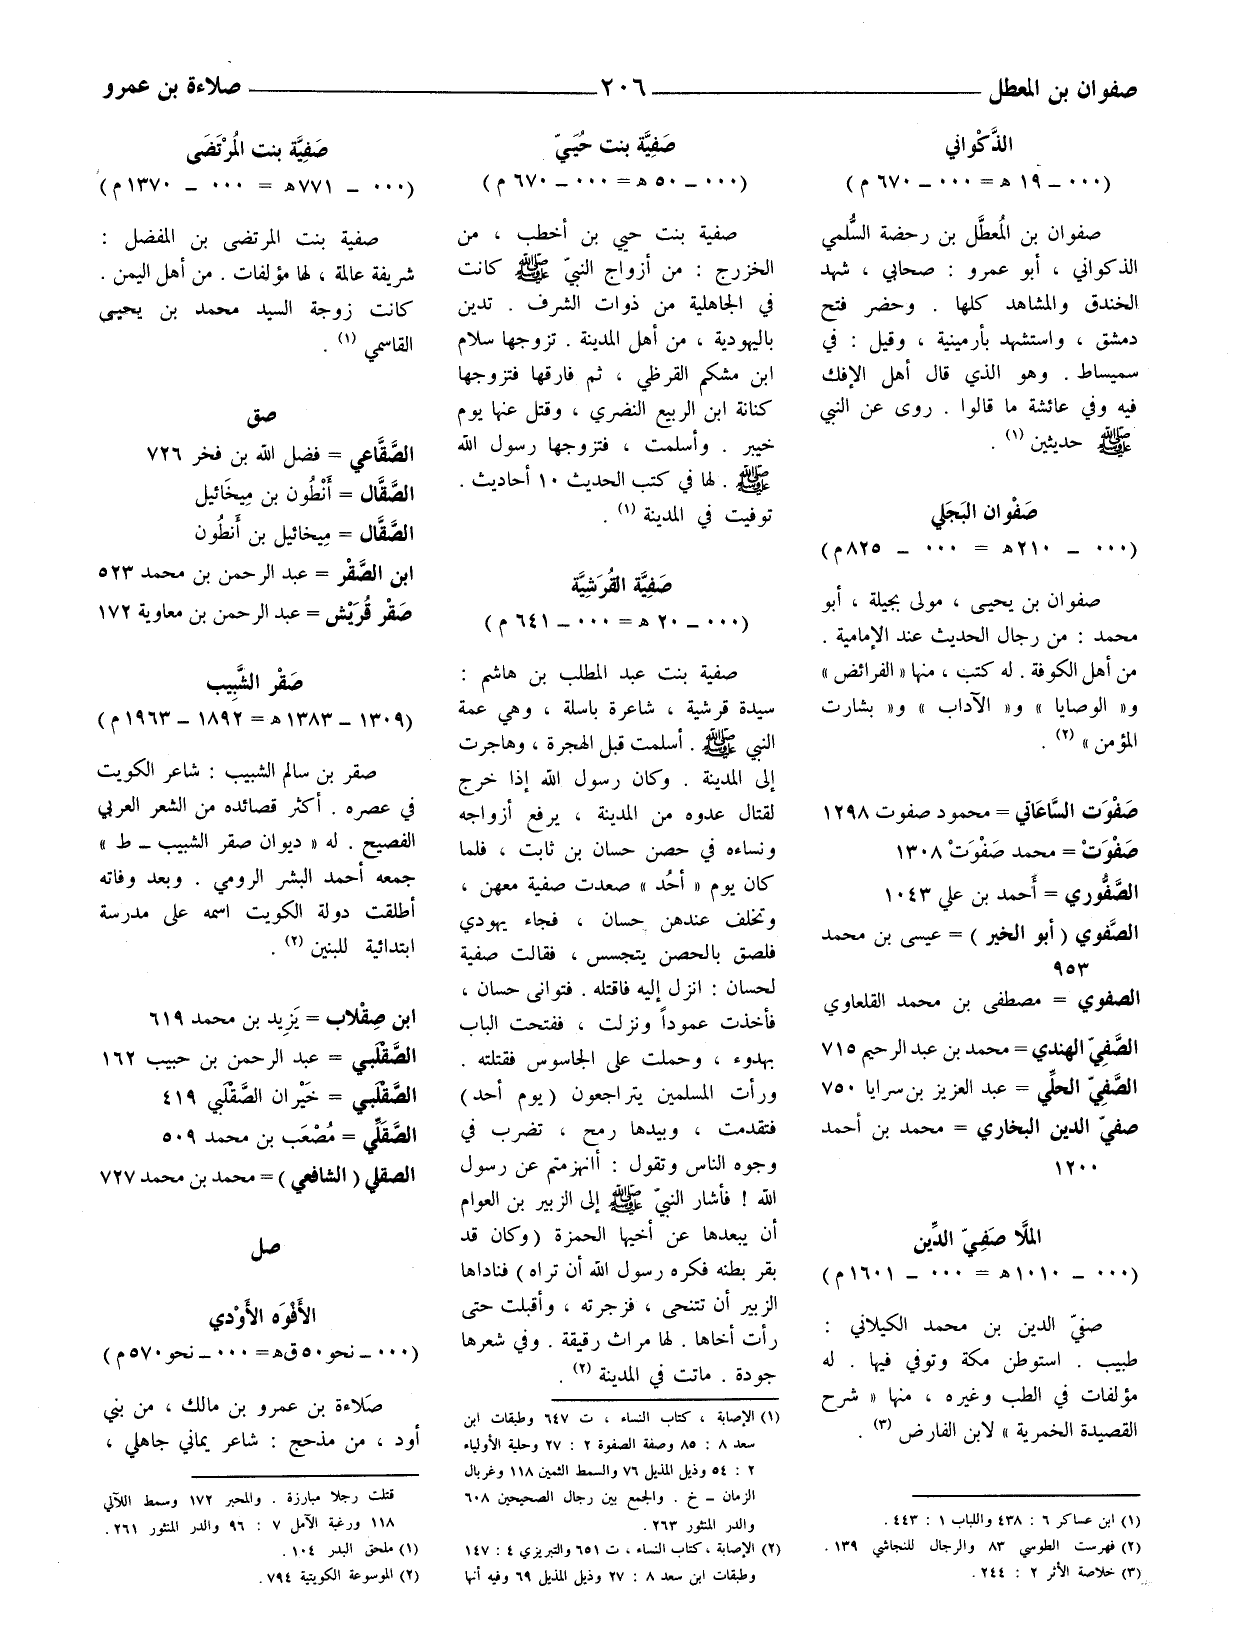 صفوان بن المعطل ٢٠٦ صلاءة بن عمرو
الذَّكْواني
(٠٠٠ ــ ١٩ هـ = ٠٠٠ ــ ٦٧٠ م)
صفوان بن المُعطَّل بن رحضة السُّلمي
الذكواني ، أبو عمرو : صحابي ، شهد
الخندق والمشاهد كلها . وحضر فتح
دمشق ، واستشهد بأرمينية ، وقيل : في
سميساط . وهو الذي قال أهل الإفك
فيه وفي عائشة ما قالوا . روى عن النبي
ﷺ حديثين (١) .
صَفْوان البَجَلي
(٠٠٠ ــ ٢١٠هـ = ٠٠٠ ــ ٨٢٥م)
صفوان بن يحيى ، مولى بجيلة ، أبو
محمد : من رجال الحديث عند الإمامية .
من أهل الكوفة . له كتب ، منها « الفرائض »
و« الوصايا » و« الآداب » و« بشارت
المؤمن » (٢) .
صَفْوَت السَّاعَاتي = محمود صفوت ١٢٩٨
صَفْوَتْ = محمد صَفْوَتْ ١٣٠٨
الصَّفُّوري = أَحمد بن علي ١٠٤٣
الصَّفَوي ( أبو الخير ) = عيسى بن محمد
٩٥٣
الصفوي = مصطفى بن محمد القلعاوي
الصَّفِيّ الهندي = محمد بن عبد الرحيم ٧١٥
الصَّفِيّ الحلِّي = عبد العزيز بن سرايا ٧٥٠
صفيّ الدين البخاري = محمد بن أحمد
١٢٠٠
المَلَّا صَفِيّ الدِّين
(٠٠٠ ــ ١٠١٠هـ = ٠٠٠ ــ ١٦٠١م)
صفيّ الدين بن محمد الكيلاني :
طبيب . استوطن مكة وتوفي فيها . له
مؤلفات في الطب وغيره ، منها « شرح
القصيدة الخمرية » لابن الفارض (٣) .
(١) ابن عساكر ٦ : ٤٣٨ واللباب ١ : ٤٤٣ .
(٢) فهرست الطوسي ٨٣ والرجال للنجاشي ١٣٩ .
(٣) خلاصة الأثر ٢ : ٢٤٤ .
صَفِيَّة بنت حُيَيّ
(٠٠٠ ــ ٥٠ هـ = ٠٠٠ ــ ٦٧٠ م)
صفية بنت حيي بن أخطب ، من
الخزرج : من أزواج النبيّ ﷺ كانت
في الجاهلية من ذوات الشرف . تدين
باليهودية ، من أهل المدينة . تزوجها سلام
ابن مشكم القرظي ، ثم فارقها فتزوجها
كنانة ابن الربيع النضري ، وقتل عنها يوم
خيبر . وأسلمت ، فتزوجها رسول الله
ﷺ . لها في كتب الحديث ١٠ أحاديث .
توفيت في المدينة (١) .
صَفِيَّة القُرَشِيَّة
(٠٠٠ ــ ٢٠ هـ = ٠٠٠ ــ ٦٤١ م)
صفية بنت عبد المطلب بن هاشم :
سيدة قرشية ، شاعرة باسلة ، وهي عمة
النبي ﷺ . أسلمت قبل الهجرة ، وهاجرت
إلى المدينة . وكان رسول الله إذا خرج
لقتال عدوه من المدينة ، يرفع أزواجه
ونساءه في حصن حسان بن ثابت ، فلما
كان يوم « أُحُد » صعدت صفية معهن ،
وتخلف عندهن حسان ، فجاء يهودي
فلصق بالحصن يتجسس ، فقالت صفية
لحسان : انزل إليه فاقتله . فتوانى حسان ،
فأخذت عموداً ونزلت ، ففتحت الباب
بهدوء ، وحملت على الجاسوس فقتلته .
ورأت المسلمين يتراجعون (يوم أحد)
فتقدمت ، وبيدها رمح ، تضرب في
وجوه الناس وتقول : أانهزمتم عن رسول
الله ! فأشار النبيّ ﷺ إلى الزبير بن العوام
أن يبعدها عن أخيها الحمزة (وكان قد
بقر بطنه فكره رسول الله أن تراه) فناداها
الزبير أن تتنحى ، فزجرته ، وأقبلت حتى
رأت أخاها . لها مراث رقيقة . وفي شعرها
جودة . ماتت في المدينة (٢) .
(١) الإصابة ، كتاب النساء ، ت ٦٤٧ وطبقات ابن
سعد ٨ : ٨٥ وصفة الصفوة ٢ : ٢٧ وحلية الأولياء
٢ : ٥٤ وذيل المذيل ٧٦ والسمط الثمين ١١٨ وغربال
الزمان ــ خ . والجمع بين رجال الصحيحين ٦٠٨
والدر المنثور ٢٦٣.
(٢) الإصابة ، كتاب النساء ، ت ٦٥١ والتبريزي ٤ : ١٤٧
وطبقات ابن سعد ٨ : ٢٧ وذيل المذيل ٦٩ وفيه أنها
صَفِيَّة بنت المُرْتَضَى
(٠٠٠ ــ ٧٧١هـ = ٠٠٠ ــ ١٣٧٠م)
صفية بنت المرتضى بن المفضل :
شريفة عالمة ، لها مؤلفات . من أهل اليمن .
كانت زوجة السيد محمد بن يحيى
القاسمي (١) .
صق
الصَّقَّاعي = فضل الله بن فخر ٧٢٦
الصَّقَّال = أَنْطُون بن مِيخَائيل
الصَّقَّال = مِيخائيل بن أَنطُون
ابن الصَّقْر = عبد الرحمن بن محمد ٥٢٣
صَقْر قُرَيْش = عبد الرحمن بن معاوية ١٧٢
صَقْر الشَّبِيب
(١٣٠٩ ــ ١٣٨٣هـ = ١٨٩٢ ــ ١٩٦٣م)
صقر بن سالم الشبيب : شاعر الكويت
في عصره . أكثر قصائده من الشعر العربي
الفصيح . له « ديوان صقر الشبيب ــ ط »
جمعه أحمد البشر الرومي . وبعد وفاته
أطلقت دولة الكويت اسمه على مدرسة
ابتدائية للبنين (٢) .
ابن صِقْلاب = يَزِيد بن محمد ٦١٩
الصَّقْلَبي = عبد الرحمن بن حبيب ١٦٢
الصَّقْلَبي = خَيْران الصَّقْلَبي ٤١٩
الصَّقَلِّي = مُصْعَب بن محمد ٥٠٩
الصقلي ( الشافعي ) = محمد بن محمد ٧٢٧
صل
الأَفْوَه الأَوْدي
(٠٠٠ ــ نحو ٥٠ ق هـ = ٠٠٠ ــ نحو ٥٧٠م)
صَلاءة بن عمرو بن مالك ، من بني
أود ، من مذحج : شاعر يماني جاهلي ،
قتلت رجلا مبارزة . والمحبر ١٧٢ وسمط اللآلي
١١٨ ورغبة الآمل ٧ : ٩٦ والدر المنثور ٢٦١.
(١) ملحق البدر ١٠٤ .
(٢) الموسوعة الكويتية ٧٩٤ .